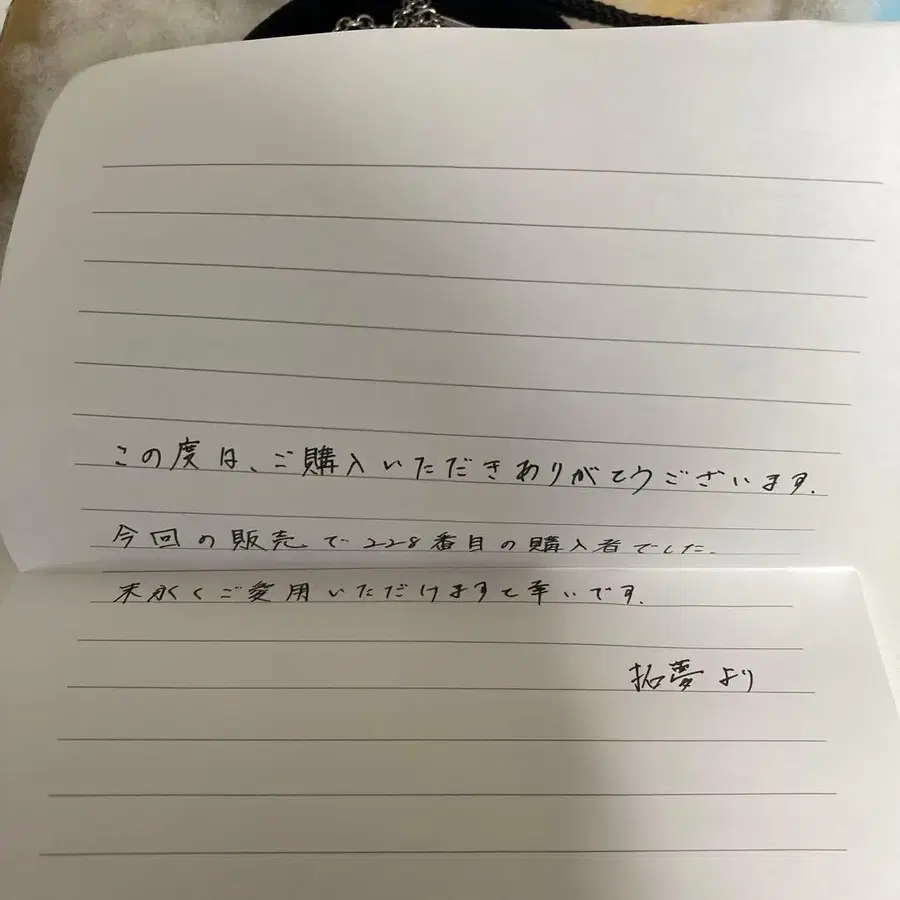 この度は、ご購入いただきありがとうございます.
今回の販売で228番目の購入者でした.
末永くご愛用いただけますと幸いです.
拓夢より